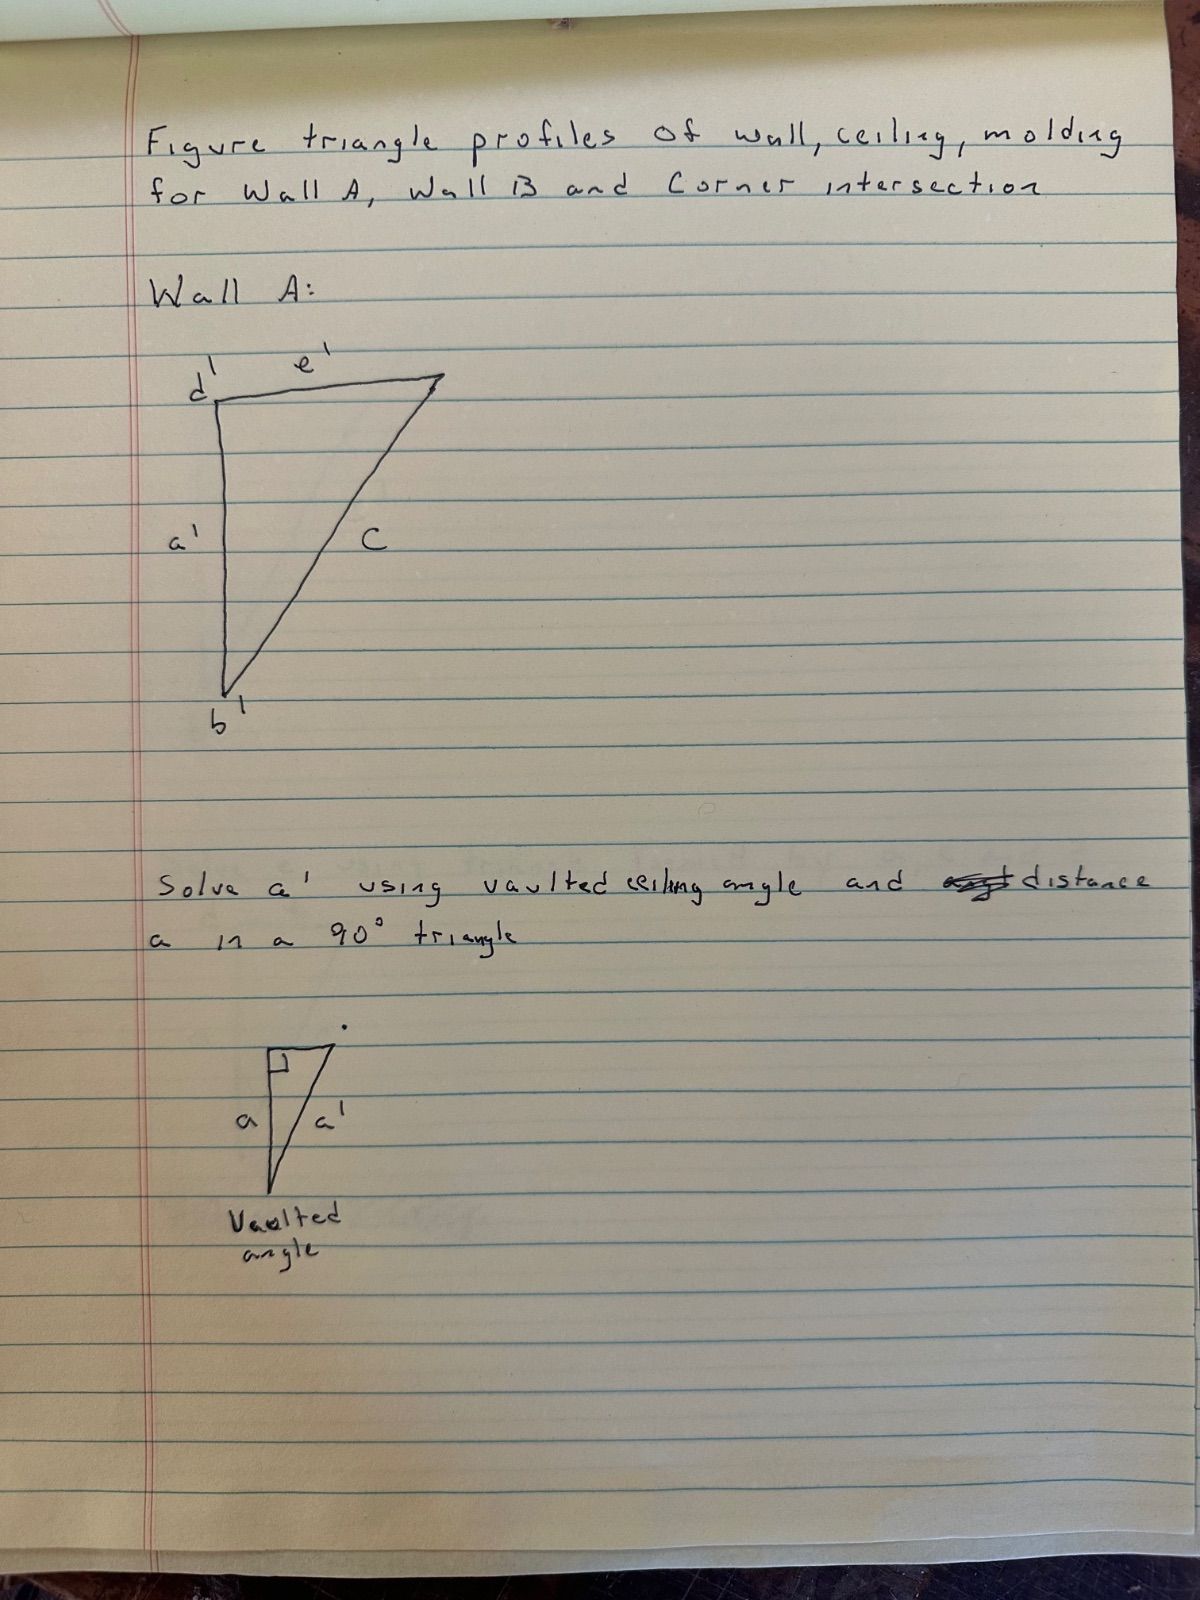 Figure triangle profiles of wall, ceiling, molding
for Wall A, Wall B and Corner intersection
Wall A:
d' e'
a' c
b'
Solve a' using vaulted ceiling angle and distance
a in a 90° triangle
a a'
Vaulted
angle